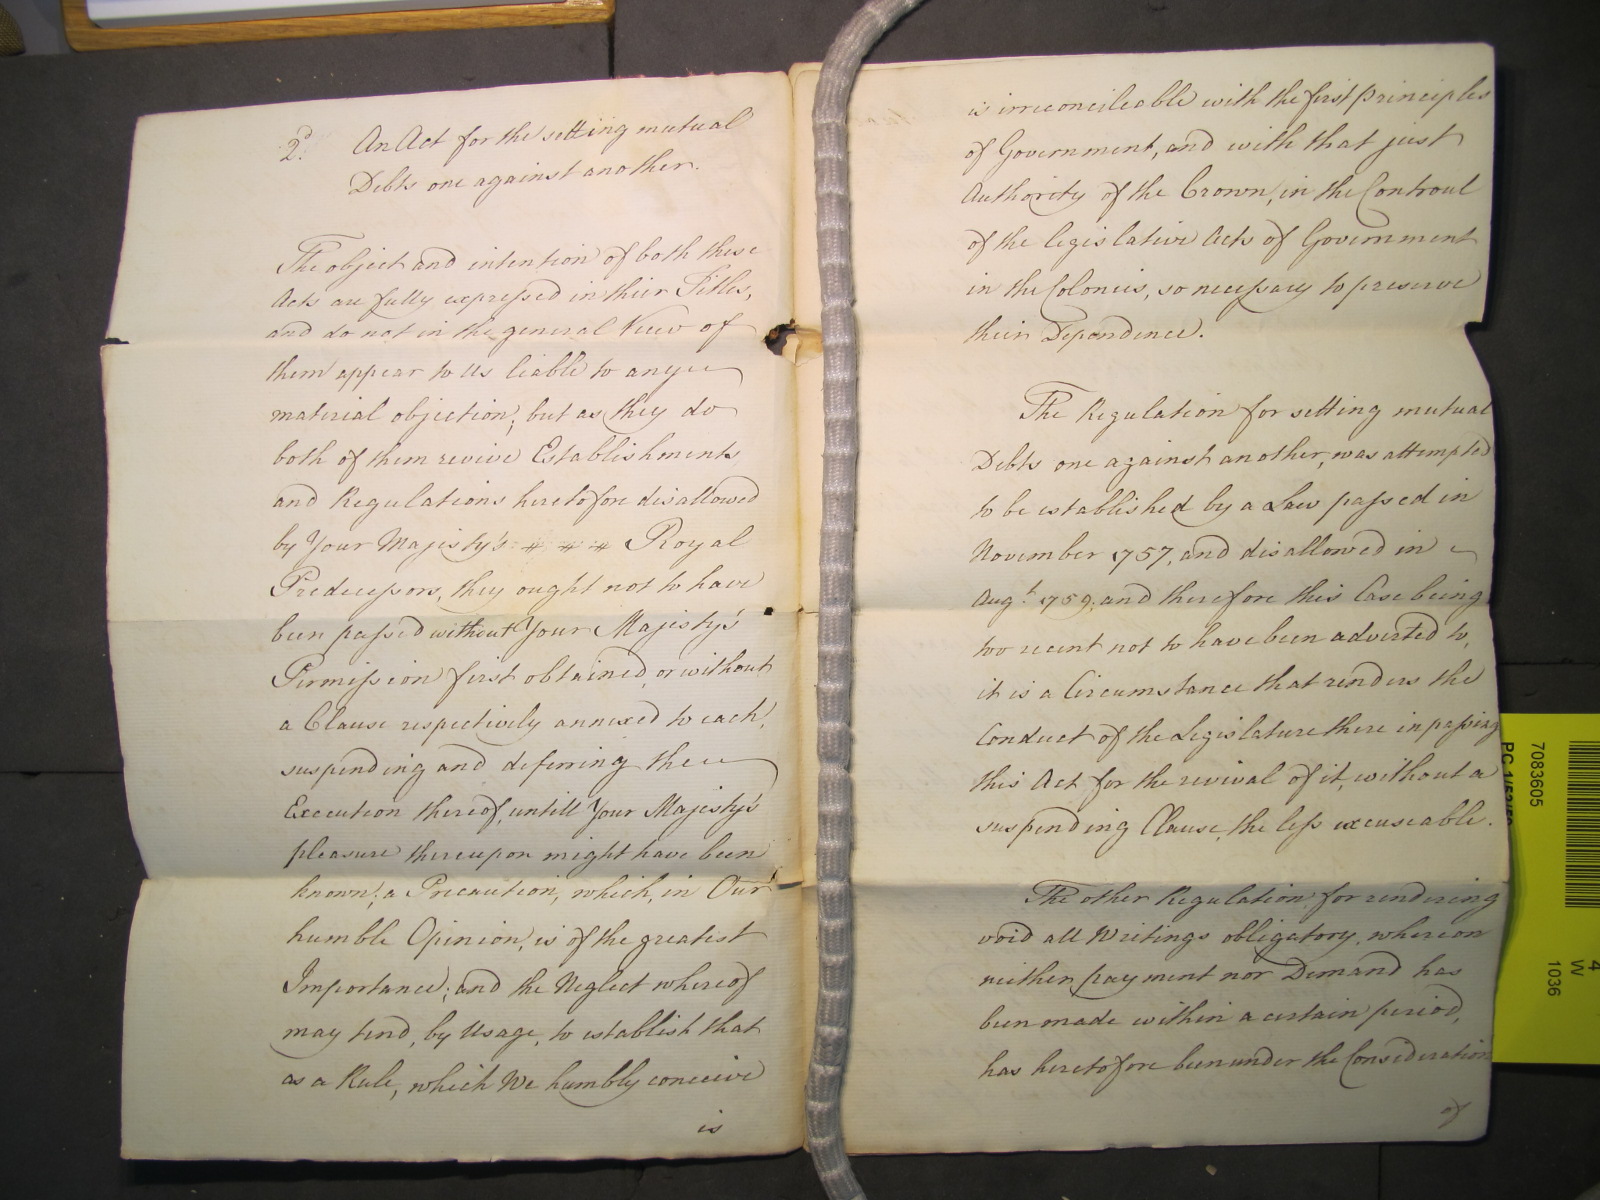 2.d An Act for the setting mutual
Debts one against another.
The object and intention of both these
Acts are fully expressed in their Titles,
and do not in the general View of
them appear to Us liable to any
material objection; but as they do
both of them revive Establishments
and Regulations heretofore disallowed
by Your Majesty's Royal
Predecessors, they ought not to have
been passed without Your Majesty's
Permission first obtained, or without
a Clause respectively annexed to each,
suspending and deferring the
Execution thereof, untill Your Majesty's
pleasure thereupon might have been
known; a Precaution, which, in Our
humble Opinion, is of the greatest
Importance; and the Neglect whereof
may tend, by Usage, to establish that
as a Rule, which We humbly conceive
is
is irreconcileable with the first Principles
of Government, and with that just
Authority of the Crown, in the Controul
of the legislative Acts of Government
in the Colonies, so necessary to preserve
their Dependence.
The Regulation for setting mutual
Debts one against another, was attempted
to be established by a Law passed in
November 1757, and disallowed in
Augt. 1759, and therefore this Case being
too recent not to have been adverted to,
it is a Circumstance that renders the
Conduct of the Legislature there in passing
this Act for the revival of it, without a
suspending Clause, the less excuseable.
The other Regulation for rendering
void all Writings obligatory, whereon
neither payment nor Demand has
been made within a certain period,
has heretofore been under the Consideration
of
7083605
4
W
1036